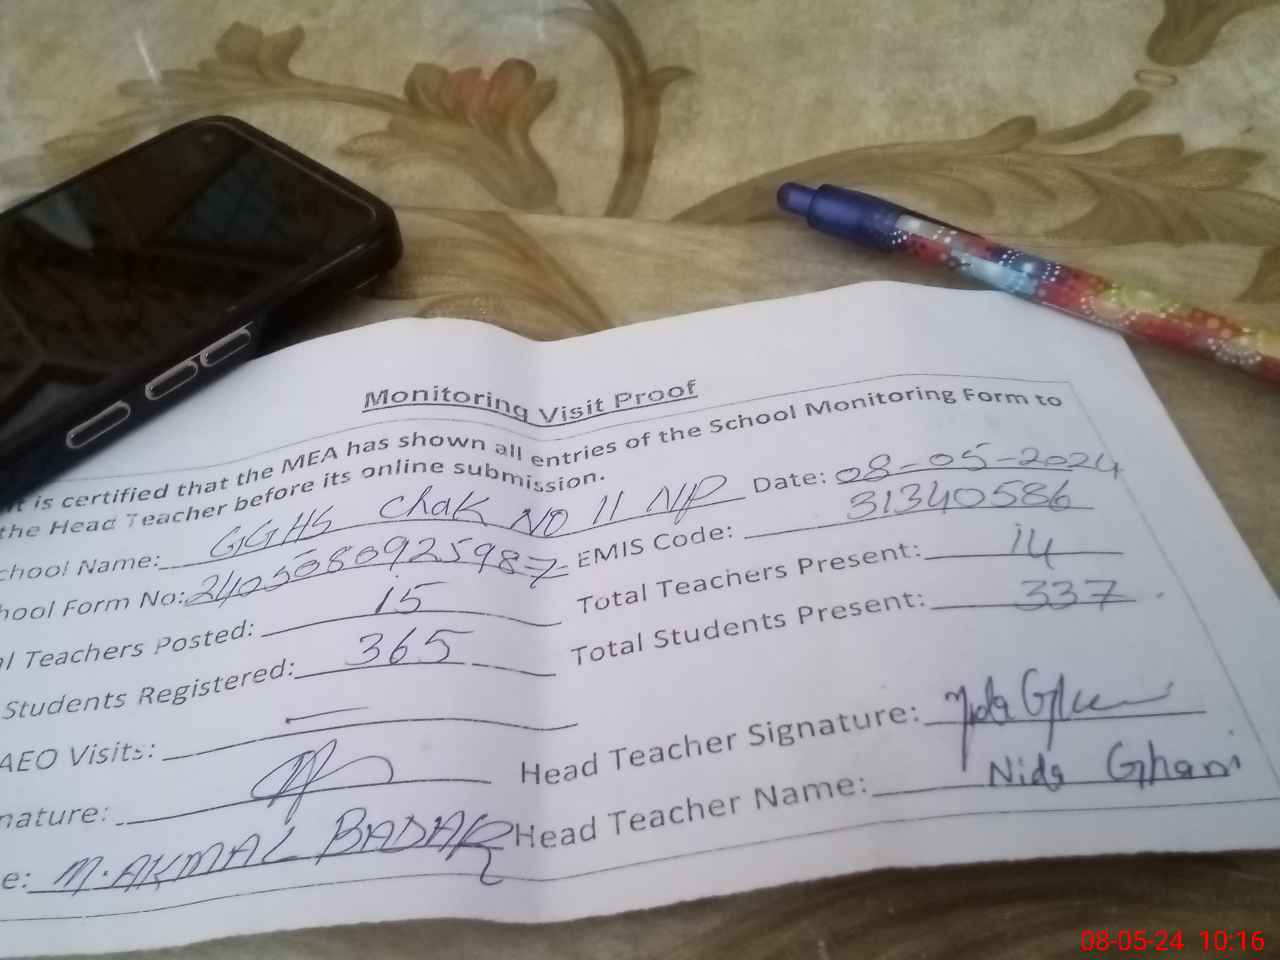 Monitoring Visit Proof
It is certified that the MEA has shown all entries of the School Monitoring Form to
the Head Teacher before its online submission.
chool Name: GGHS Chak NO 11 NP Date: 08-05-2024
hool Form No: 2405080925987 EMIS Code: 31340586
al Teachers Posted: 15 Total Teachers Present: 14
Students Registered: 365 Total Students Present: 337
AEO Visits: —
nature: Head Teacher Signature: Nida Ghani
e: M. AKMAL BADAR Head Teacher Name: Nida Ghani
08-05-24 10:16